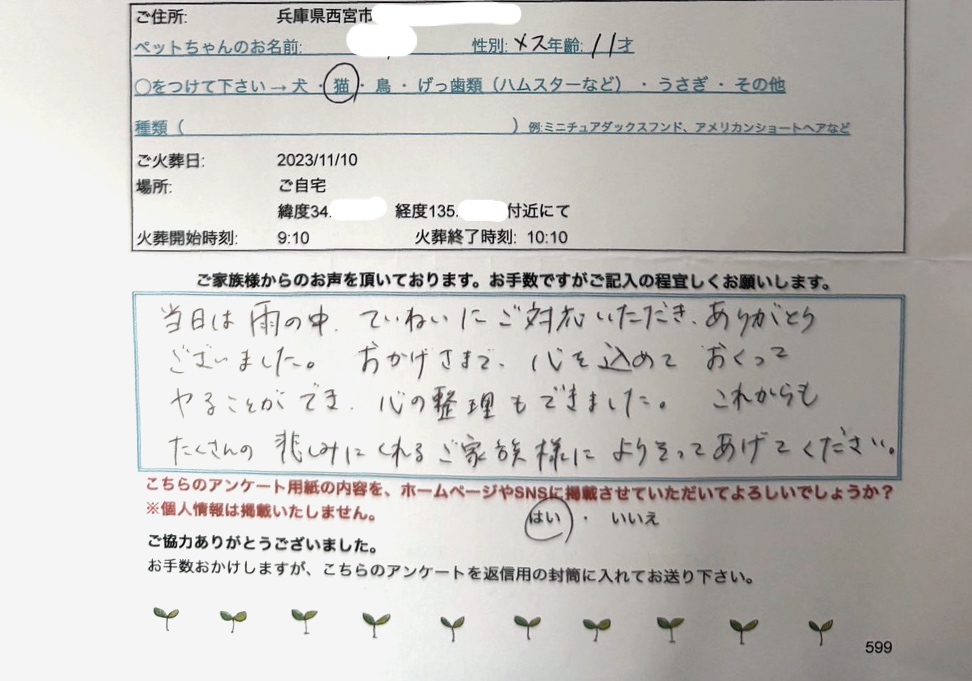 ご住所: 兵庫県西宮市
ペットちゃんのお名前: 性別: メス 年齢: 11才
○をつけて下さい→犬 ・ 猫 ・ 鳥 ・ げっ歯類（ハムスターなど） ・ うさぎ ・ その他
種類（ ）例:ミニチュアダックスフンド、アメリカンショートヘアなど
ご火葬日: 2023/11/10
場所: ご自宅
緯度34. 経度135. 付近にて
火葬開始時刻: 9:10 火葬終了時刻: 10:10
ご家族様からのお声を頂いております。お手数ですがご記入の程宜しくお願いします。
当日は雨の中、ていねいにご対応いただき、ありがとう
ございました。 おかげさまで、心を込めて おくって
やることができ、心の整理もできました。 これからも
たくさんの 悲しみにくれるご家族様に よりそってあげてください。
こちらのアンケート用紙の内容を、ホームページやSNSに掲載させていただいてよろしいでしょうか？
※個人情報は掲載いたしません。
はい ・ いいえ
ご協力ありがとうございました。
お手数おかけしますが、こちらのアンケートを返信用の封筒に入れてお送り下さい。
599